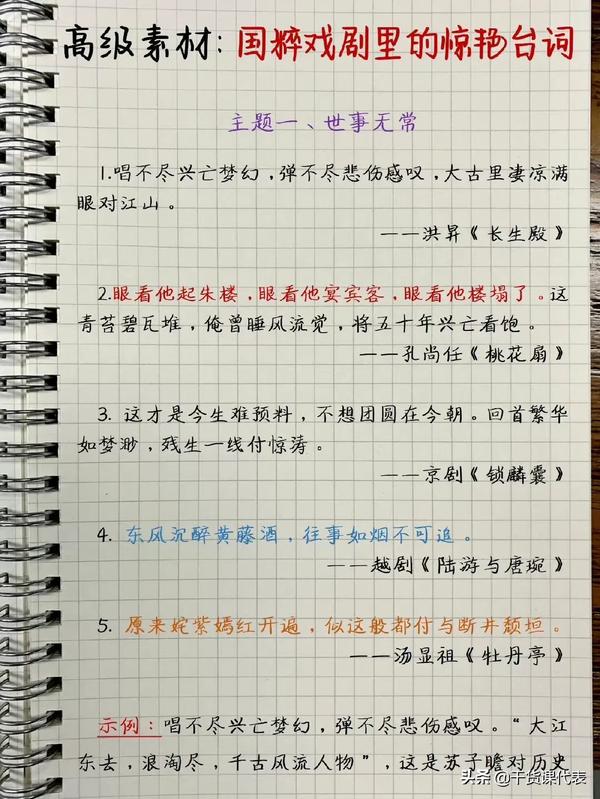 高级素材：国粹戏剧里的惊艳台词
主题一、世事无常
1.唱不尽兴亡梦幻，弹不尽悲伤感叹，大古里凄凉满
眼对江山。
——洪昇《长生殿》
2.眼看他起朱楼，眼看他宴宾客，眼看他楼塌了。这
青苔碧瓦堆，俺曾睡风流觉，将五十年兴亡看饱。
——孔尚任《桃花扇》
3. 这才是今生难预料，不想团圆在今朝。回首繁华
如梦渺，残生一线付惊涛。
——京剧《锁麟囊》
4. 东风沉醉黄藤酒，往事如烟不可追。
——越剧《陆游与唐琬》
5. 原来姹紫嫣红开遍，似这般都付与断井颓垣。
——汤显祖《牡丹亭》
示例：唱不尽兴亡梦幻，弹不尽悲伤感叹。“大江
东去，浪淘尽，千古风流人物”，这是苏子瞻对历史
头条 @干货课代表